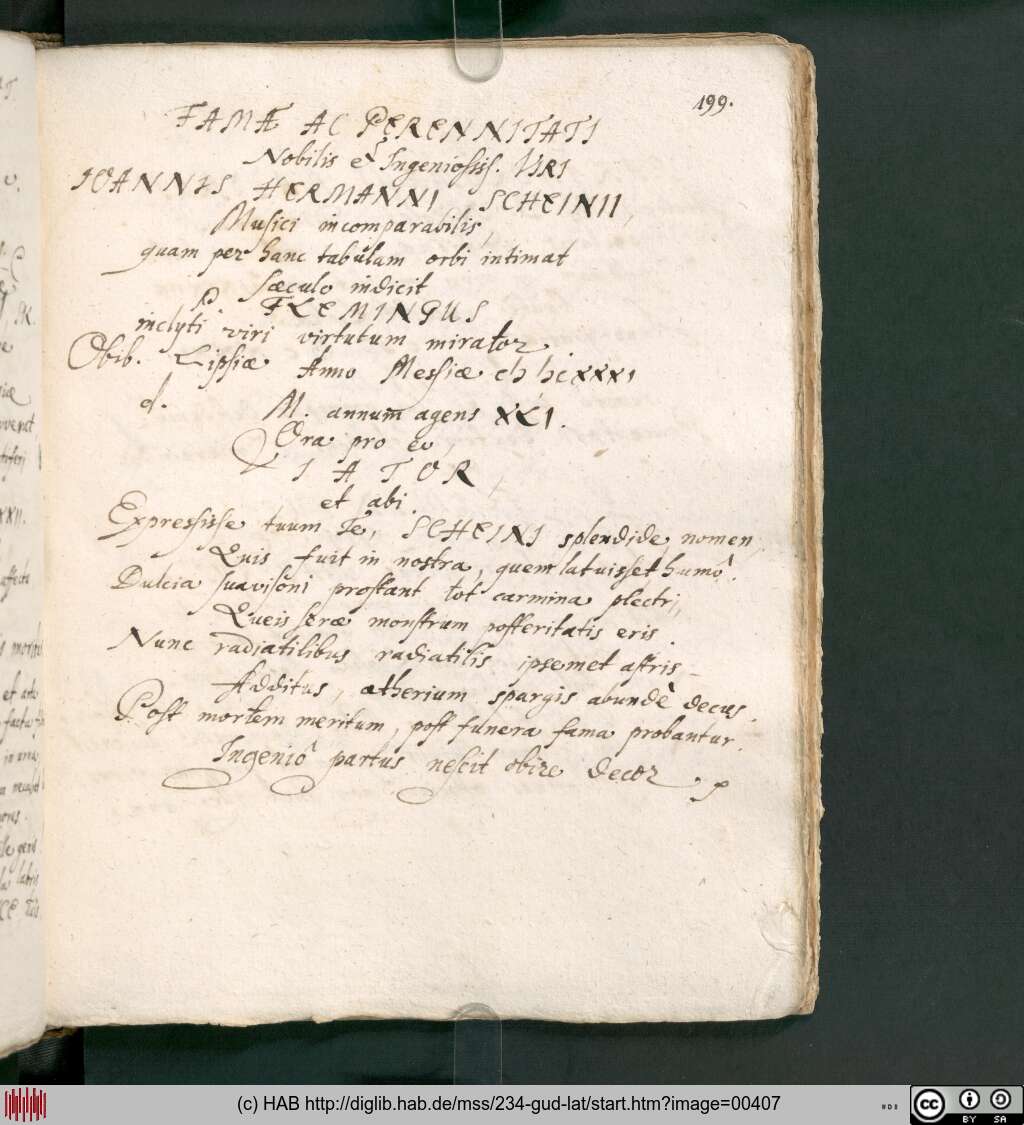 199.
FAMÆ AC PERENNITATI
Nobilis et Ingeniosiss. VIRI
IOANNIS HERMANNI SCHEINII,
Musici incomparabilis,
quam per hanc tabulam orbi intimat
sæculo indicit
P. FLEMINGUS
inclyti viri virtutum mirator
Obib. Lipsiæ Anno Messiæ
d. M. annum agens XLI.
Ora pro eo,
VIATOR
et abi.
Expressisse tuum Te, SCHEINI splendide, nomen,
Quis fuit in nostra, quem latuisset humô.
Dulcia suavisoni prostant tot carmina plectri,
Queis seræ monstrum posteritatis eris.
Nunc radiatilibus radiatilis ipsemet astris
Additus, ætherium spargis abundè decus.
Post mortem meritum, post funera fama probantur.
Ingeniô partus nescit obire decor.
(c) HAB http://diglib.hab.de/mss/234-gud-lat/start.htm?image=00407
cc BY SA